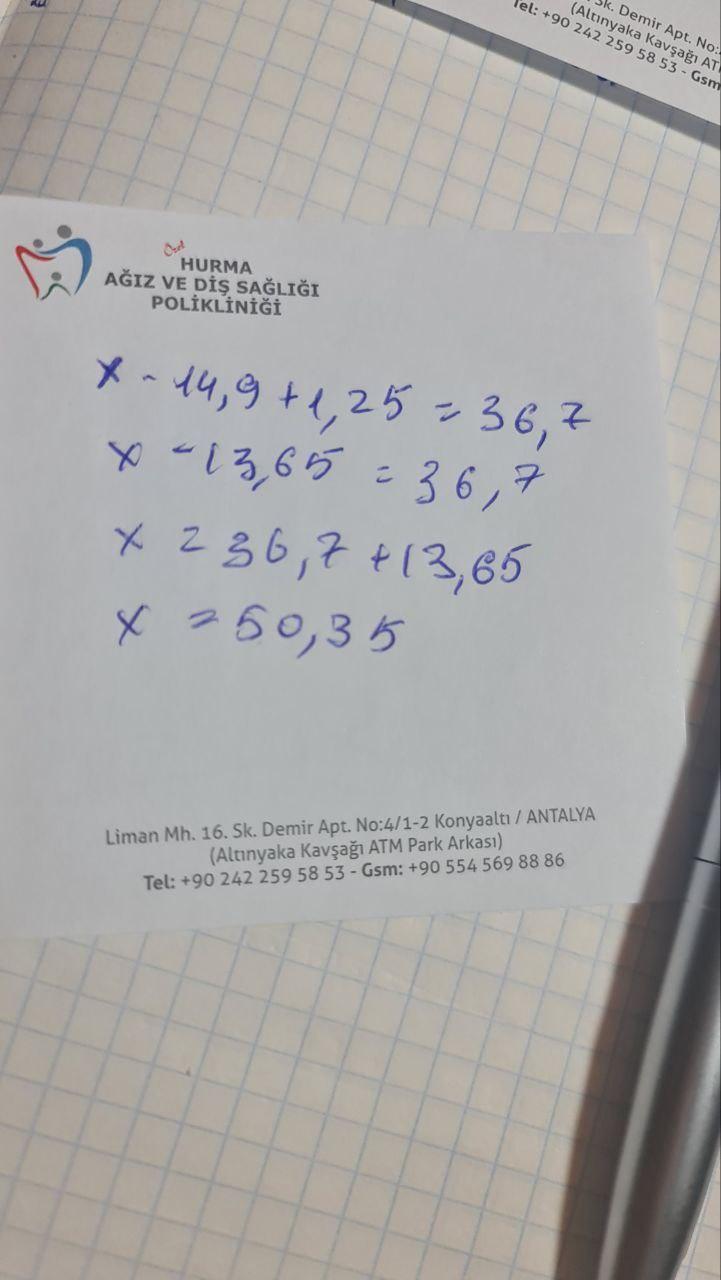 Sk. Demir Apt. No:
(Altınyaka Kavşağı AT
Tel: +90 242 259 58 53 - Gsm
Özel
HURMA
AĞIZ VE DİŞ SAĞLIĞI
POLİKLİNİĞİ
x - 14,9 + 1,25 = 36,7
x - 13,65 = 36,7
x = 36,7 + 13,65
x = 50,35
Liman Mh. 16. Sk. Demir Apt. No:4/1-2 Konyaaltı / ANTALYA
(Altınyaka Kavşağı ATM Park Arkası)
Tel: +90 242 259 58 53 - Gsm: +90 554 569 88 86